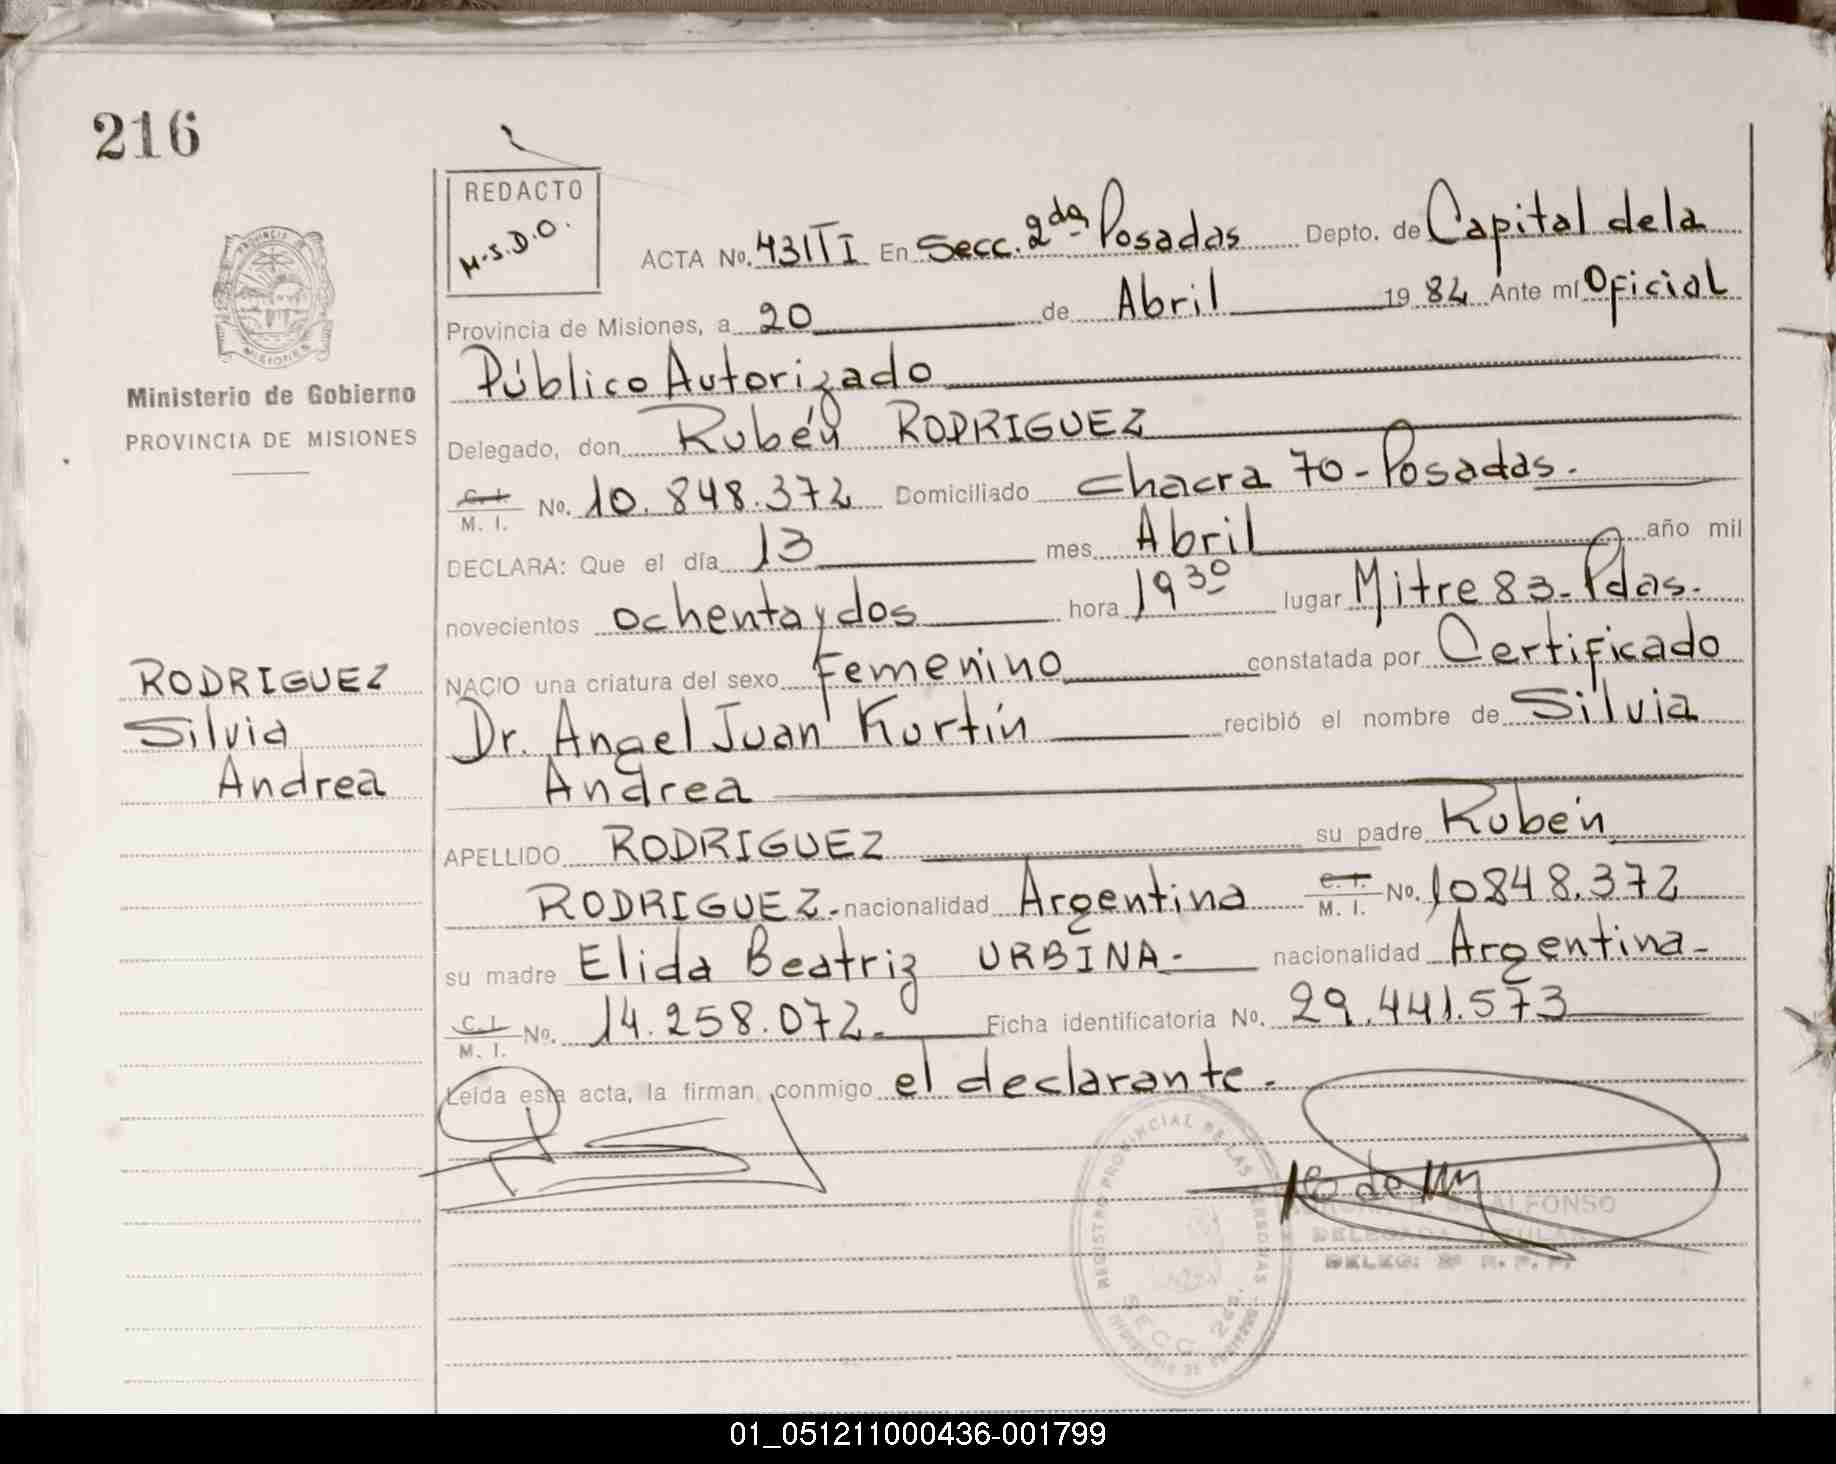 216
REDACTO
M.S.D.O.
PROVINCIA DE
MISIONES
Ministerio de Gobierno
PROVINCIA DE MISIONES
RODRIGUEZ
Silvia
Andrea
ACTA No. 431TI En Secc. 2da Posadas Depto. de Capital de la
Provincia de Misiones, a 20 de Abril 1982 Ante mí Oficial
Público Autorizado
Delegado, don Rubén RODRIGUEZ
C. I. / M. I. No. 10.848.372 Domiciliado Chacra 70 - Posadas.
DECLARA: Que el día 13 mes Abril año mil
novecientos ochenta y dos hora 19 30 lugar Mitre 83 - Pdas.
NACIO una criatura del sexo Femenino constatada por Certificado
Dr. Angel Juan Kurtín recibió el nombre de Silvia
Andrea
APELLIDO RODRIGUEZ su padre Rubén
RODRIGUEZ.- nacionalidad Argentina C. I. / M. I. No. 10848.372
su madre Elida Beatriz URBINA - nacionalidad Argentina -
C. I. / M. I. No. 14.258.072.- Ficha identificatoria No. 29.441.573
Leída esta acta, la firman conmigo el declarante.
REGISTRO PROVINCIAL DE LAS PERSONAS
SECC. 2da.
ALFONSO
DELEGADA TITULAR
01_051211000436-001799